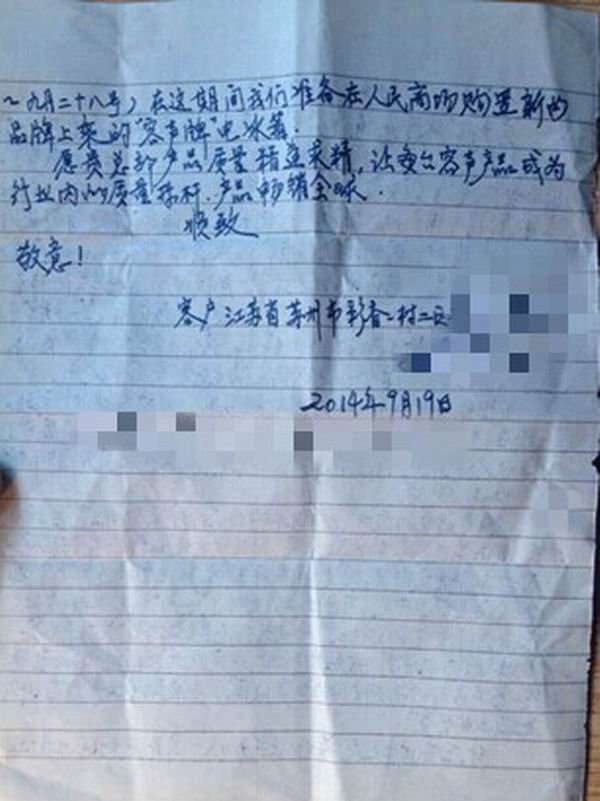 ~九月二十八号)在这期间我们准备在人民商场购置新的
品牌上来的"容声牌"电冰箱.
愿贵总部产品质量精益求精,让每台容声产品成为
行业内的质量标杆.产品畅销全球.
顺致
敬意!
客户江苏省苏州市彩香一村二区
2014年9月19日